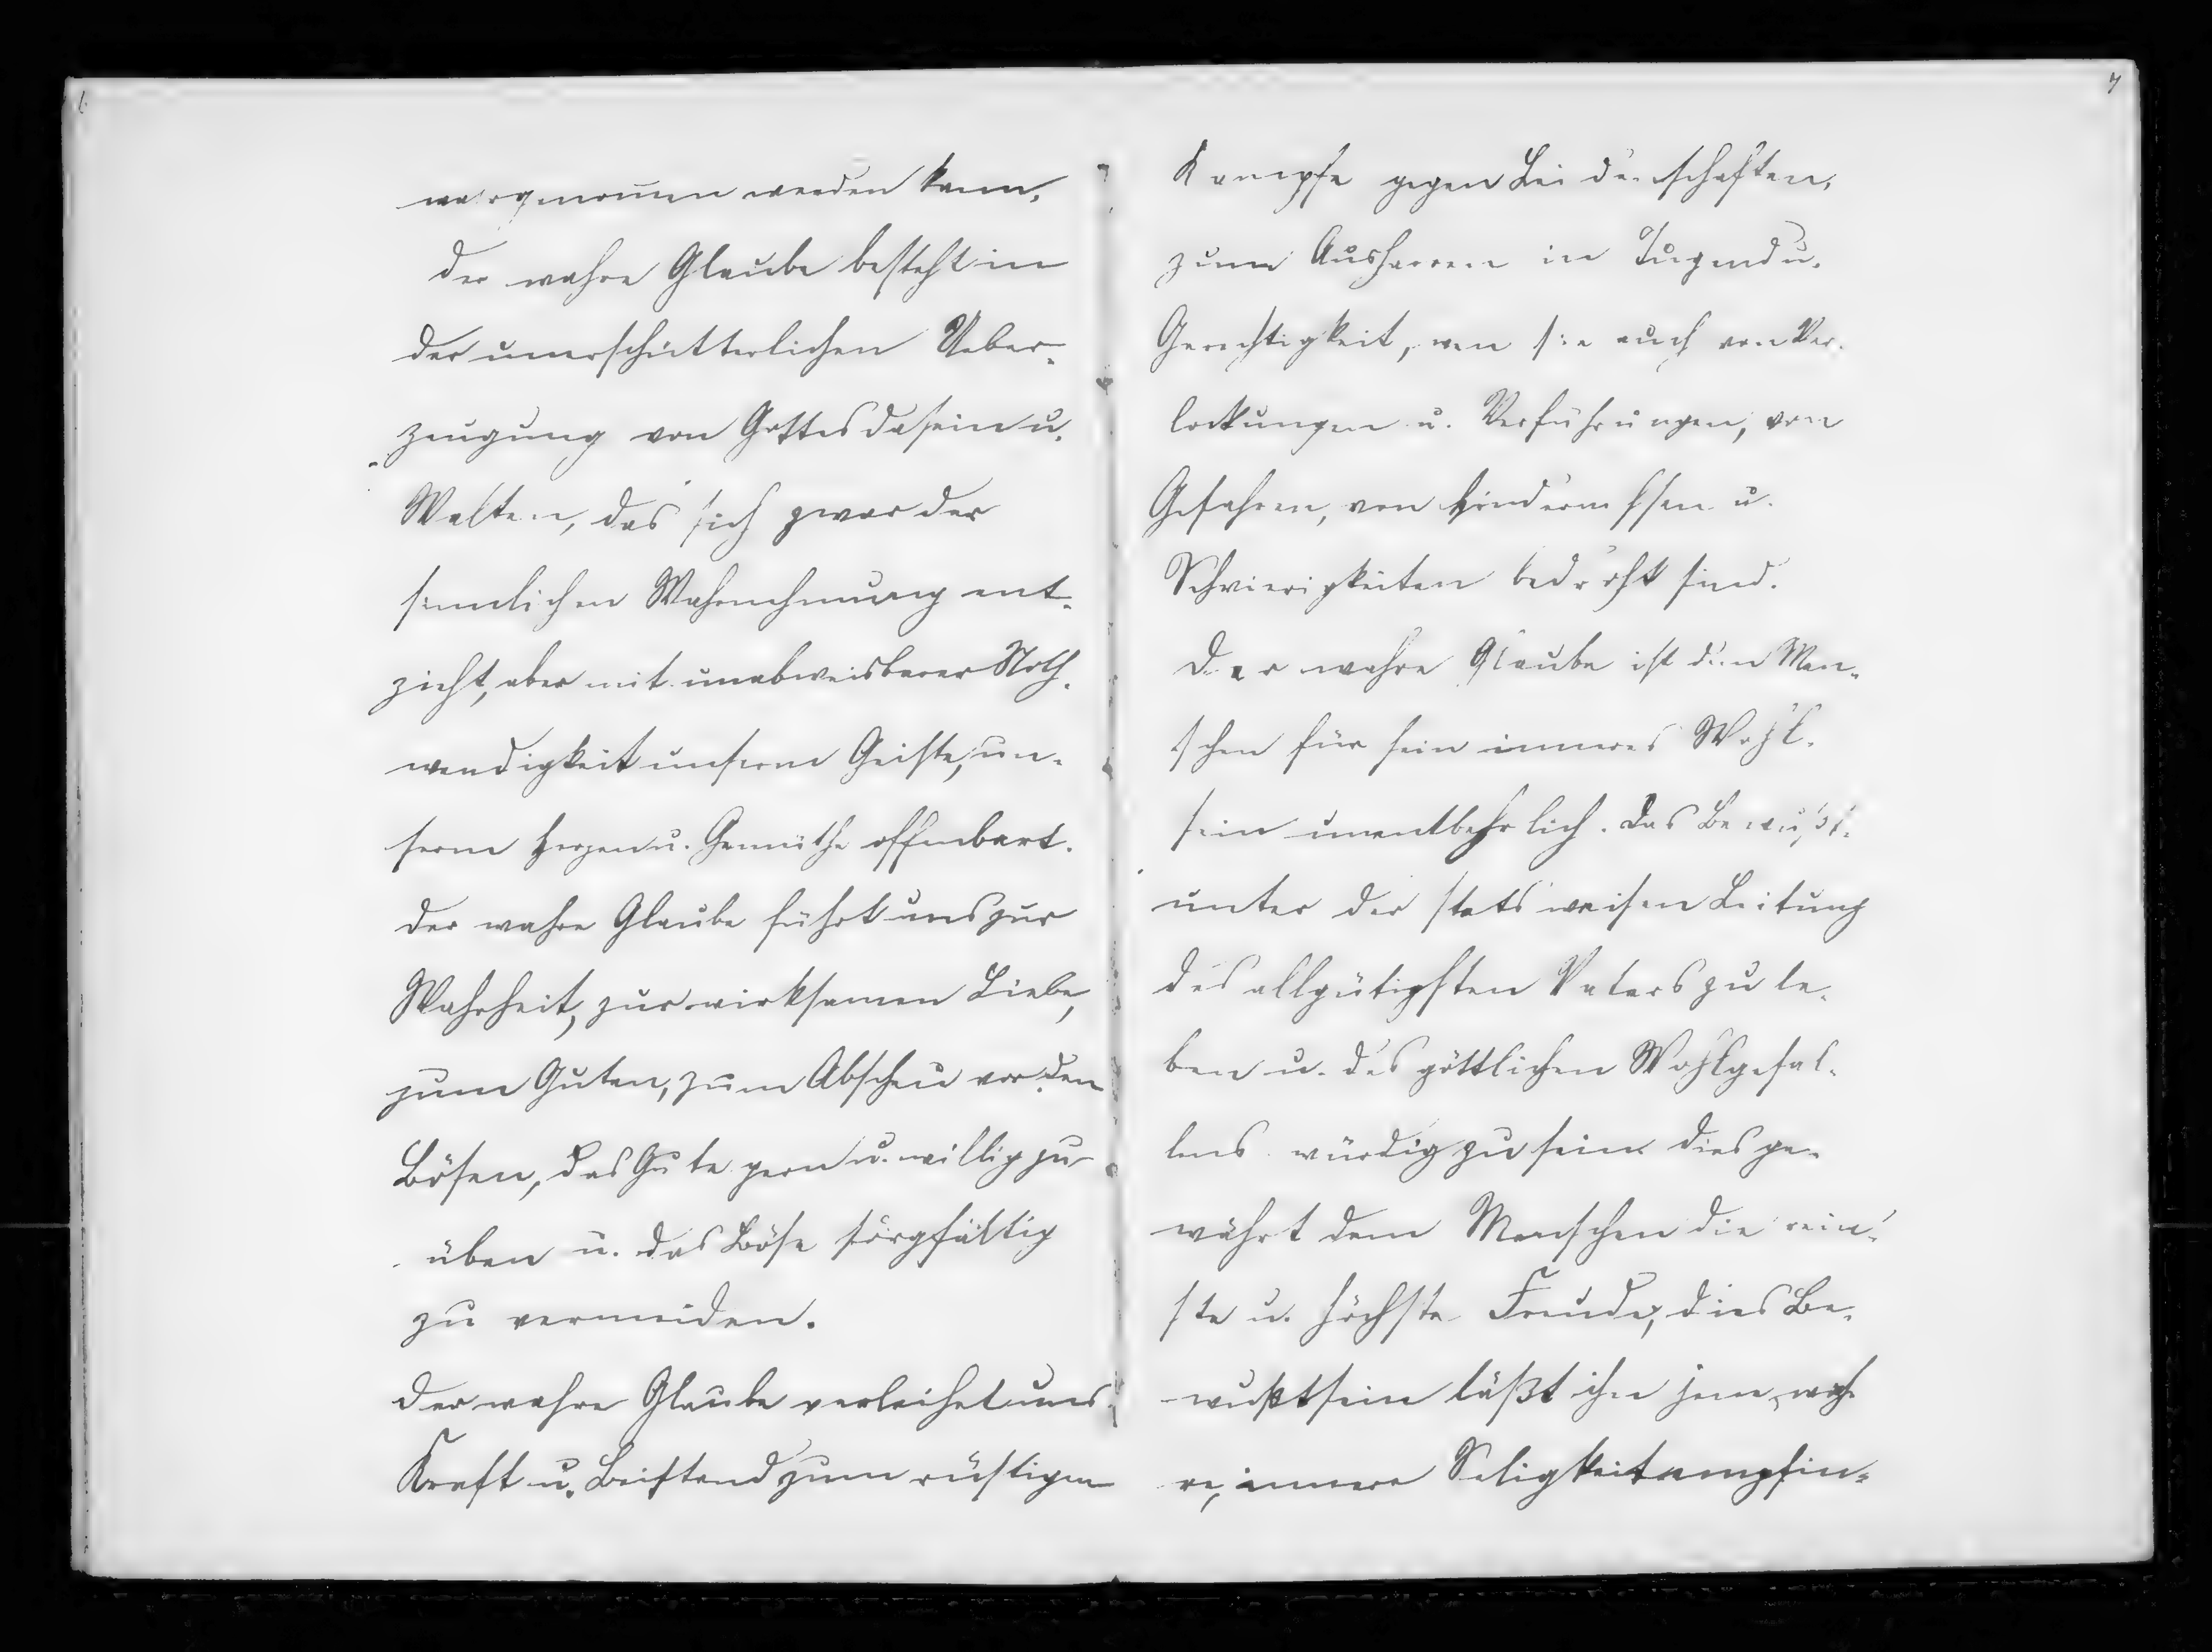 wargenommen werden kann.
Der wahre Glaube besteht in
der unerschütterlichen Ueber-
zeugung von Gottes Dasein u.
Walten, das sich zwar der
sinnlichen Wahrnehmung ent-
zieht, aber mit unabweisbarer Noth-
wendigkeit unserm Geiste, un-
serm Herzen u. Gemüthe offenbart.
Der wahre Glaube führt uns zur
Wahrheit, zur wirksamen Liebe,
zum Guten, zum Abscheu vor den
Bösen, das Gute gern u. willig zu
üben u. das Böse sorgfältig
zu vermeiden.
Der wahre Glaube verleihet uns
Kraft u. Beistand zum rüstigen
7
Kampfe gegen Leidenschaften,
zum Ausharren in Tugend u.
Gerechtigkeit, wen sie auch von Ver-
lockungen u. Verführungen, von
Gefahren, von Hindernissen u.
Schwierigkeiten bedroht sind.
Der wahre Glaube ist den Men-
schen für sein inneres Wohl-
sein unentbehrlich. Das Bewußt-
unter der stets weisen Leitung
des allgütigsten Vaters zu le-
ben u. des göttlichen Wohlgefal-
lens würdig zu sein dies ge-
währt dem Menschen die rein-
ste u. höchste Freude, dies Be-
wußtsein läßt ihn jene wah-
re, innere Seligkeit empfin-